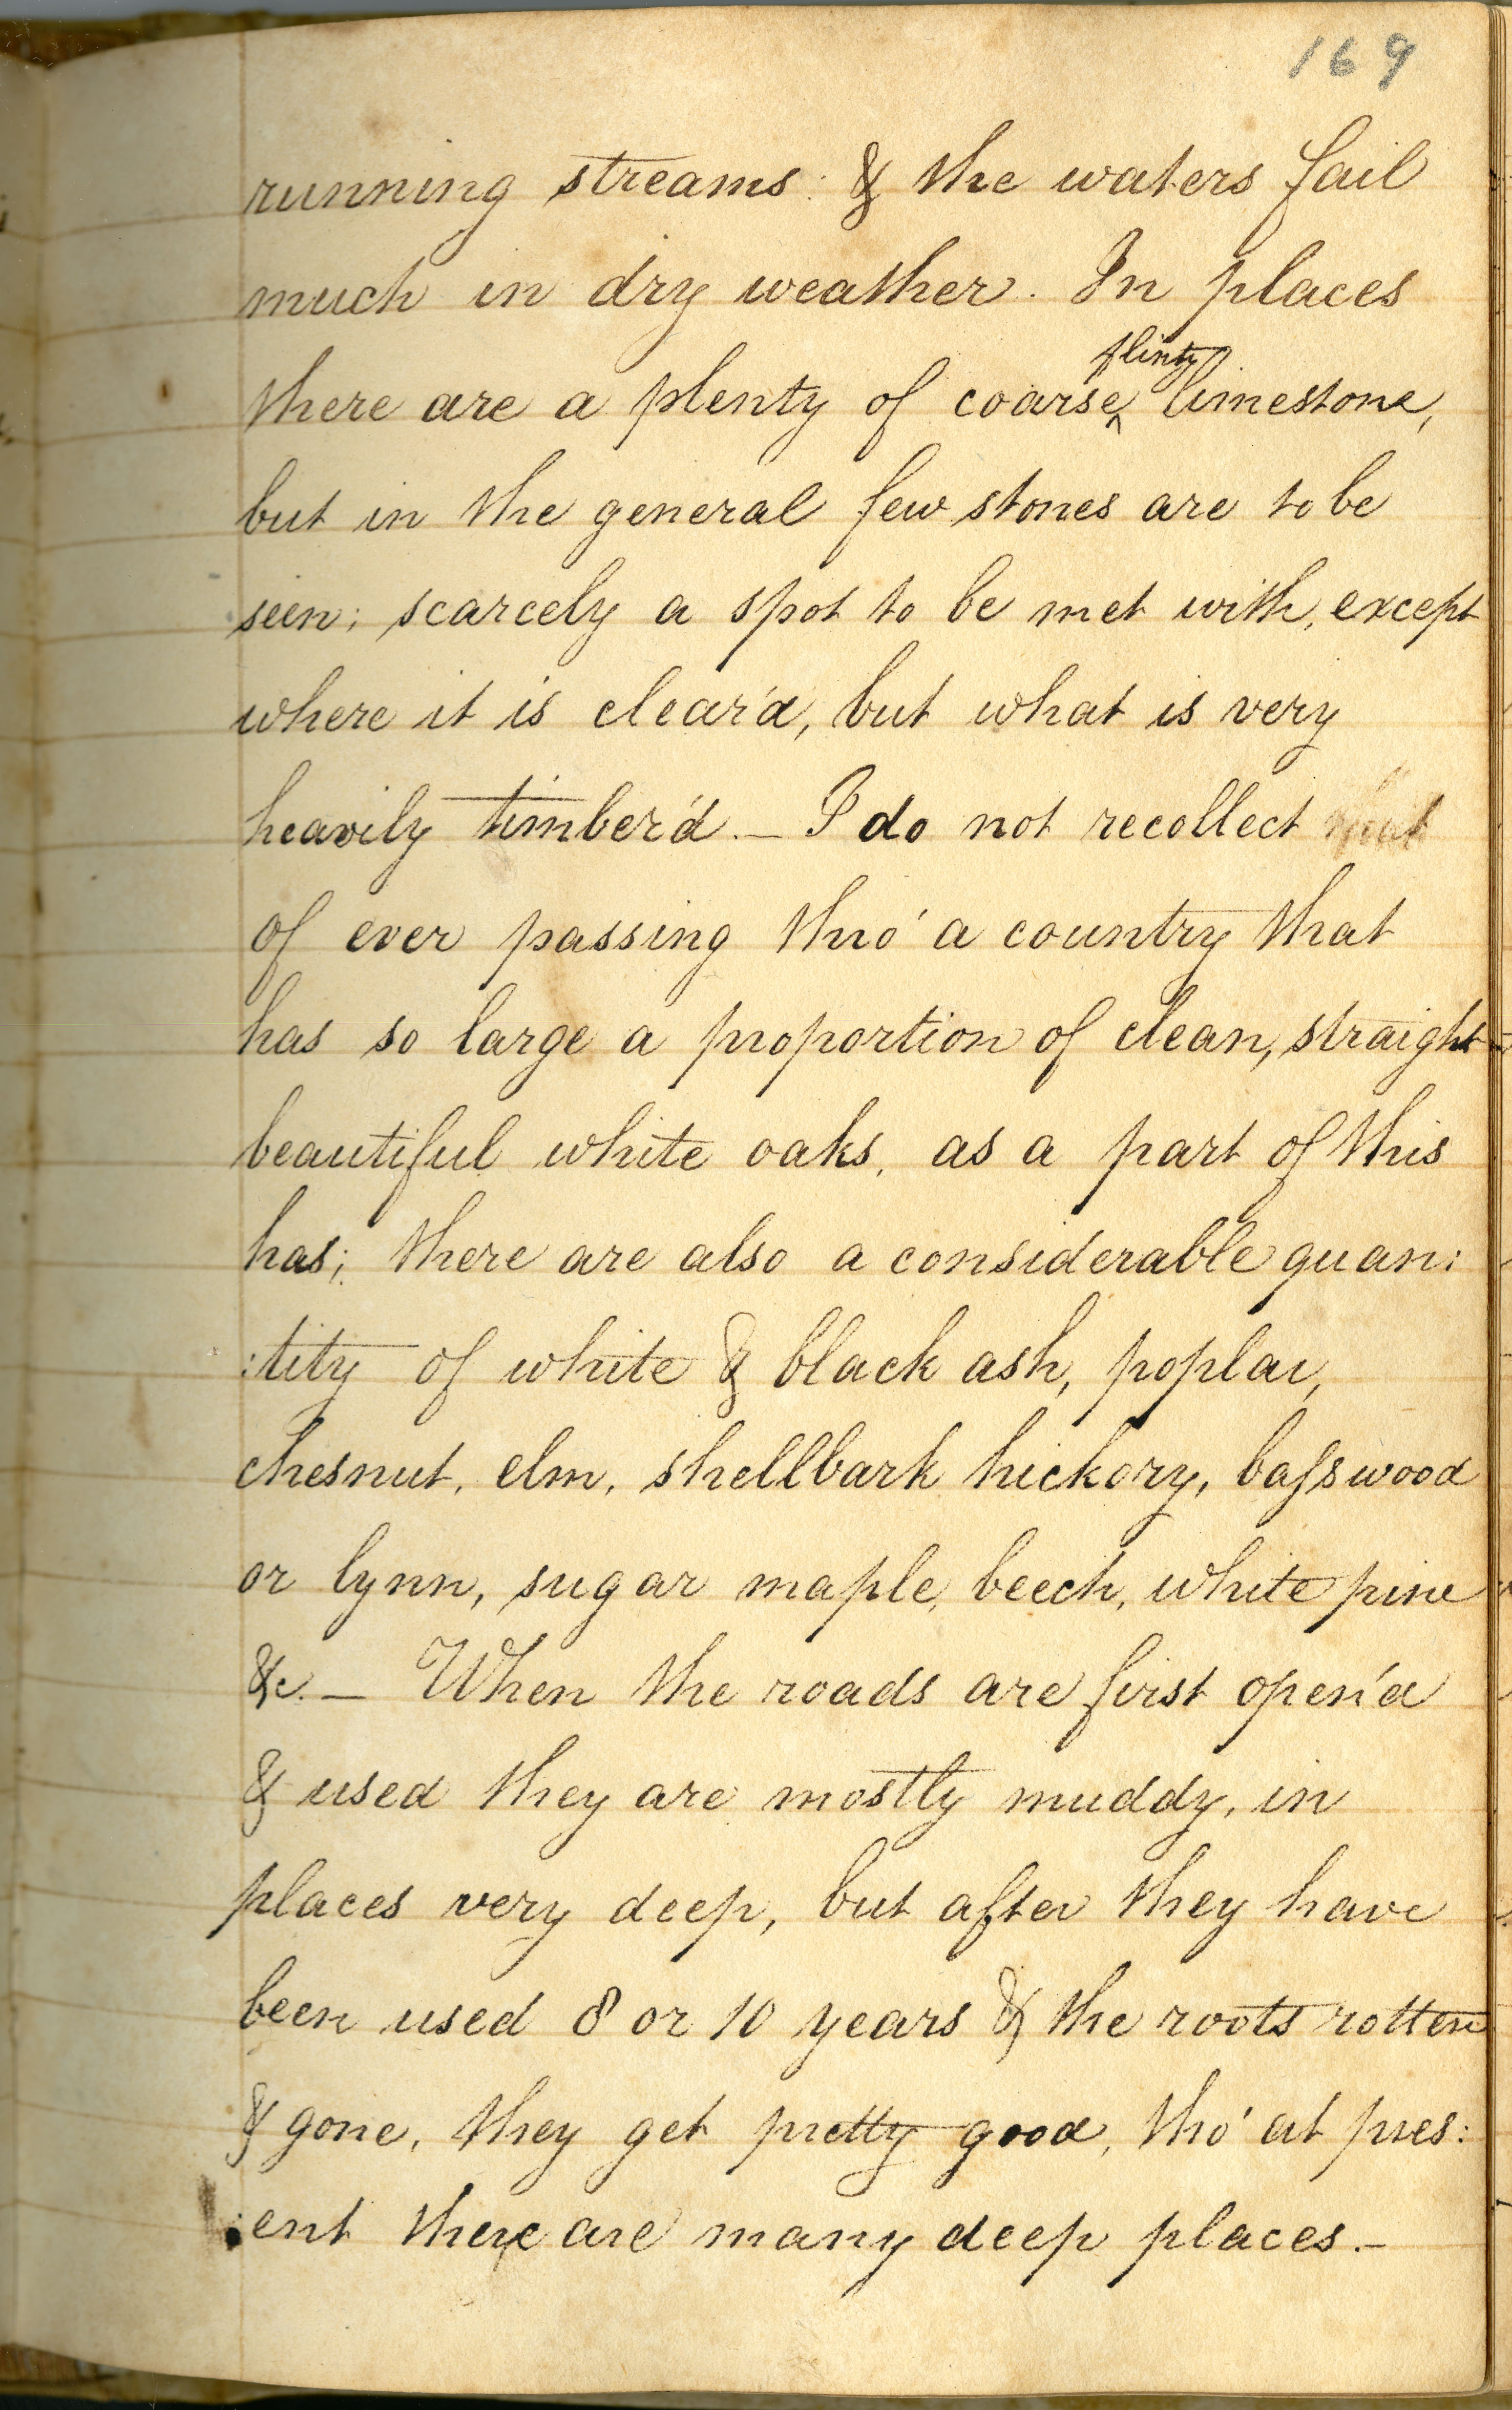 169
running streams: & the waters fail
much in dry weather. In places
flinty
there are a plenty of coarse‸ limestone,
but in the general few stones are to be
seen; scarcely a spot to be met with, except
where it is clear'd, but what is very
heavily timber'd.— I do not recollect
of ever passing thro' a country that
has so large a proportion of clean, straight
beautiful white oaks, as a part of this
has; there are also a considerable quan:
:tity of white & black ash, poplar,
chesnut, elm, shellbark hickory, baſswood
or lynn, sugar maple, beech, white pine
&c.— When the roads are first open'd
& used they are mostly muddy, in
places very deep, but after they have
been used 8 or 10 years & the roots rotten
& gone, they get pretty good, tho' at pres:
:ent there are many deep places.—